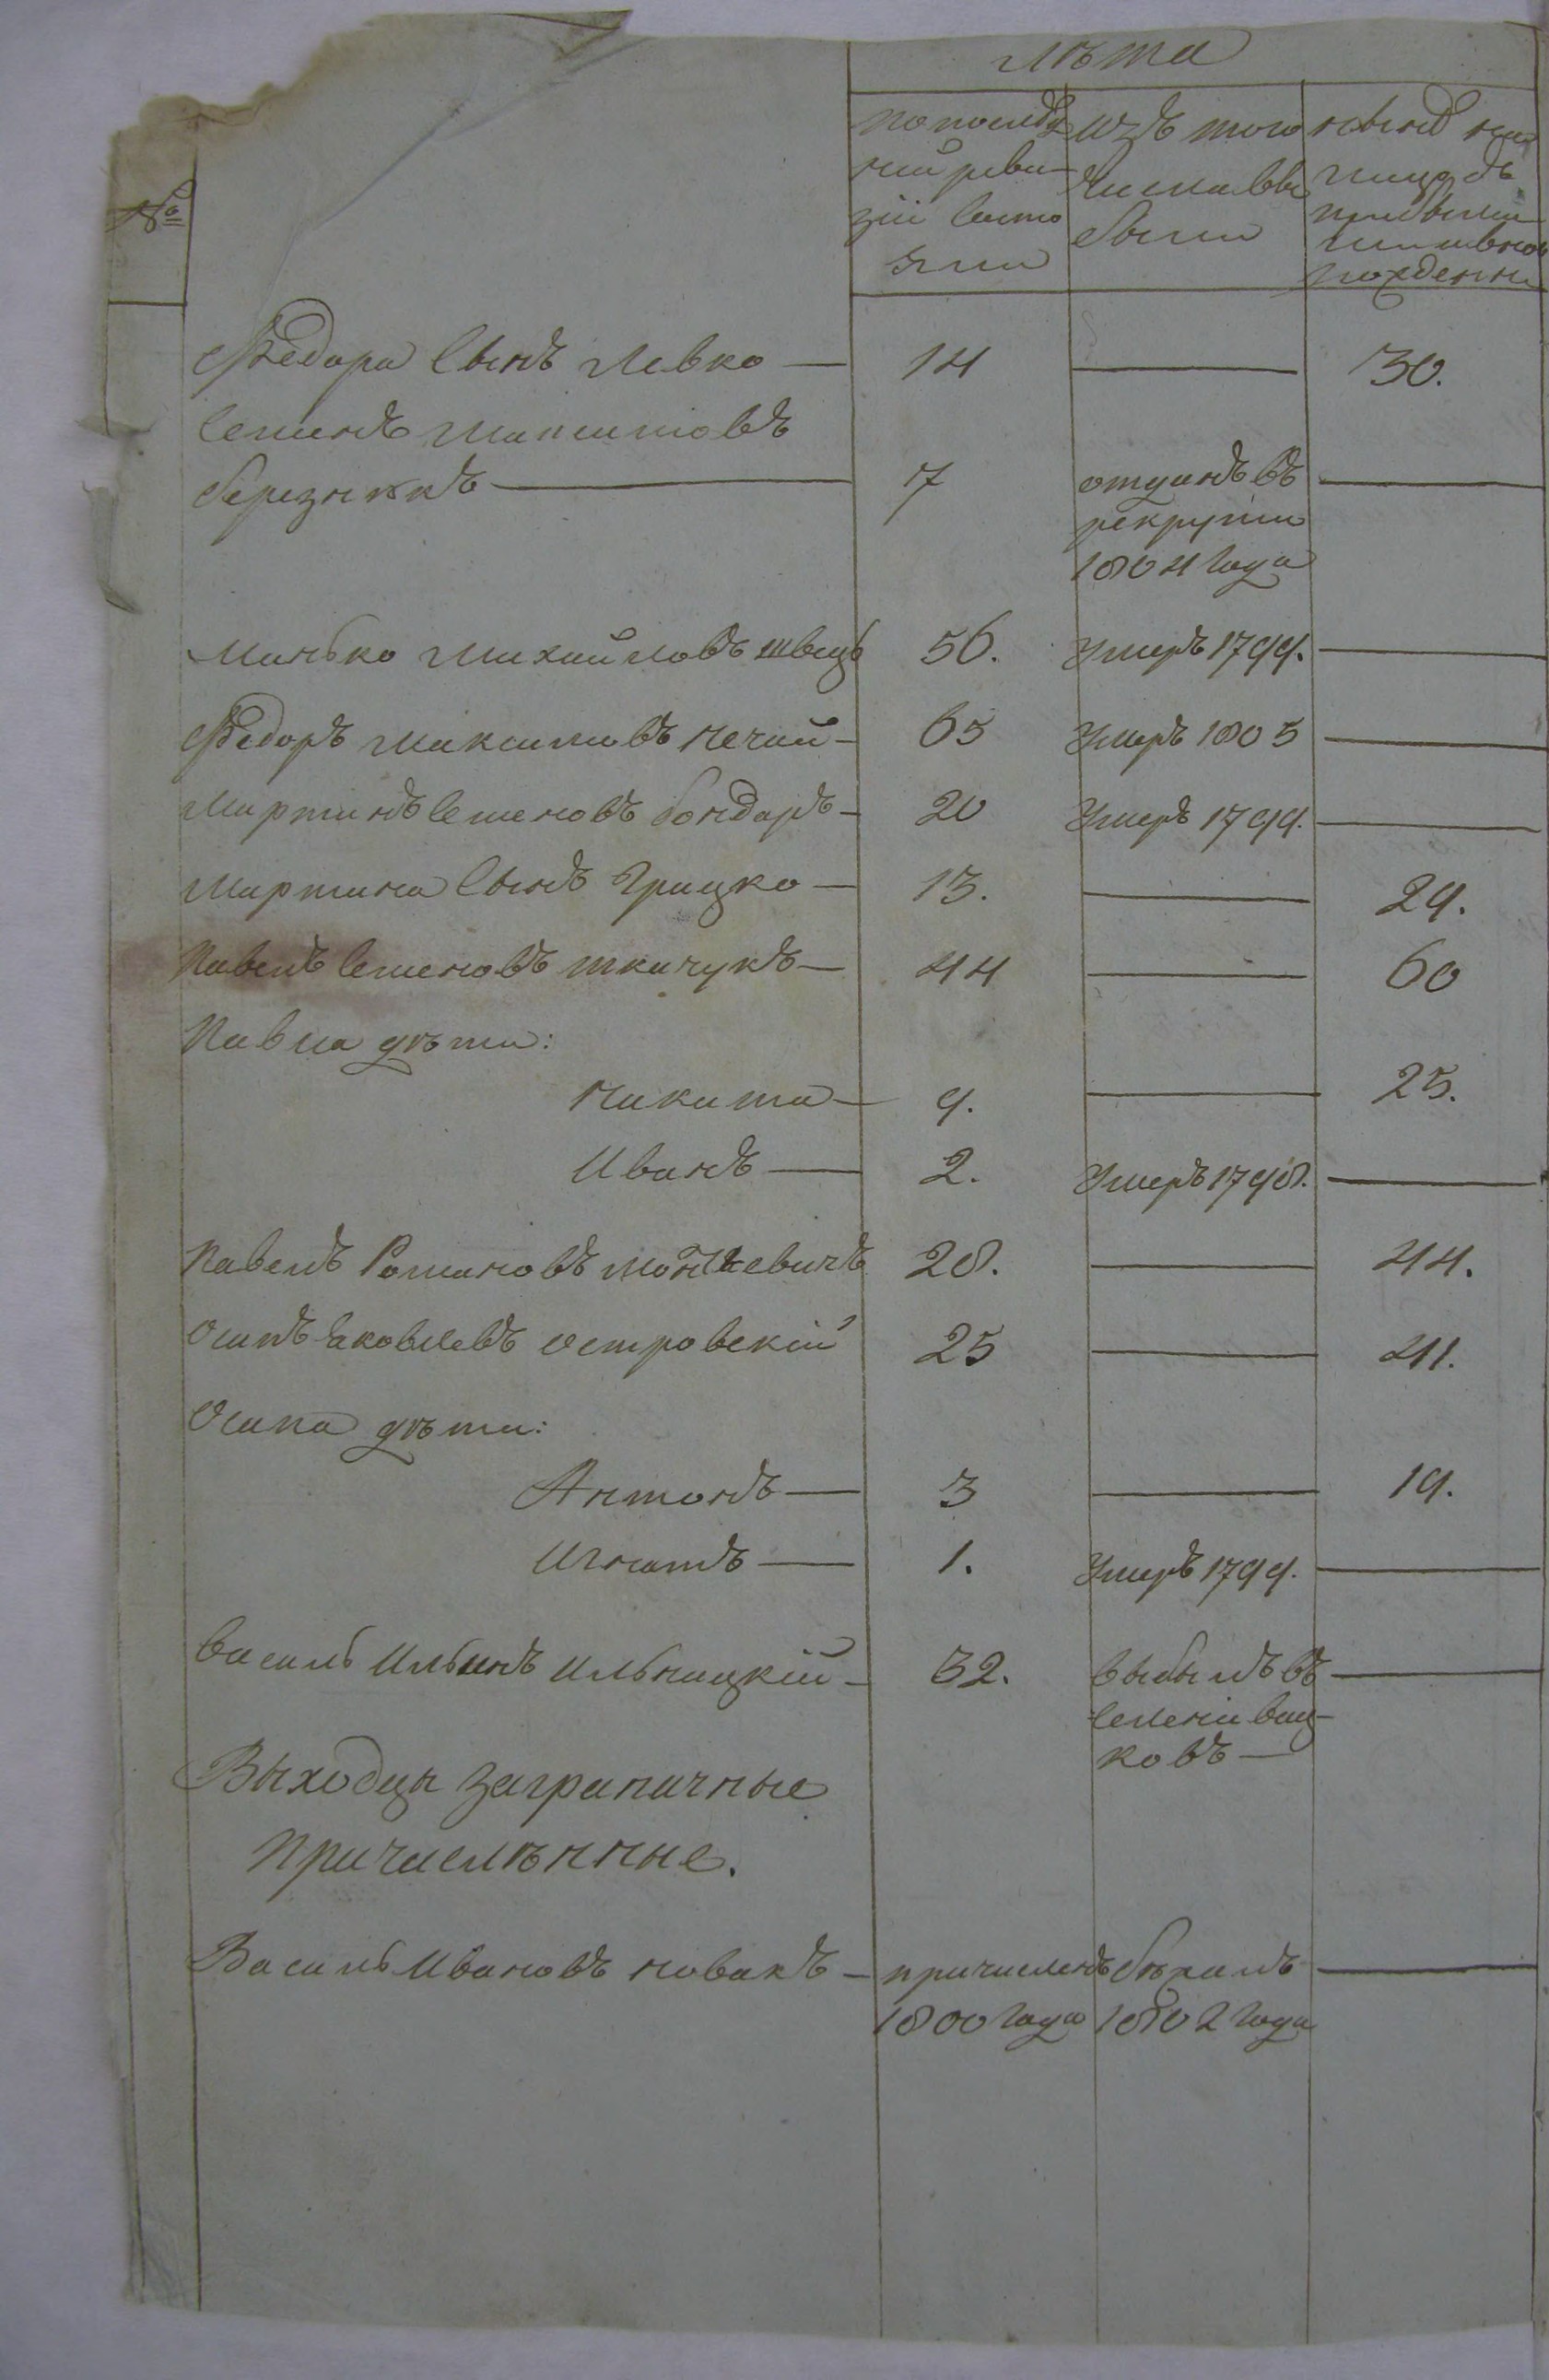 лѣта
№
по послѣд
ней реви
зіи состо
яли
изъ того
числа вы
были
нынѣ на
лицо съ
прибылыми
и новорож
денны
Федора сынъ Левко — 14 — 30.
Семенъ Максимовъ
березнякъ — 7 отданъ въ —
рекруты
1804 года
Минько Михайловъ швецъ 56. Умеръ 1799. —
Федоръ Максимовъ нечай — 65 Умеръ 1805 —
Мартинъ Семеновъ бондаръ — 20 Умеръ 1799. —
Мартина сынъ Грицко — 13. — 29.
Павелъ Семеновъ ткачукъ — 44 — 60
Павла дѣти:
Никита — 9. — 25.
Иванъ — 2. Умеръ 1798. —
Павелъ Романовъ 28. — 44.
Осипъ Яковлевъ островскій 25 — 41.
Осипа дѣти:
Антонъ — 3 — 19.
Игнатъ — 1. Умеръ 1799. —
Василь Ильинъ Ильницкій — 32. выбылъ въ —
селеніе Вац-
ковъ —
Выходцы заграничные
Причислѣнные.
Василь Ивановъ новакъ — причисленъ бѣжалъ —
1800 года 1802 года